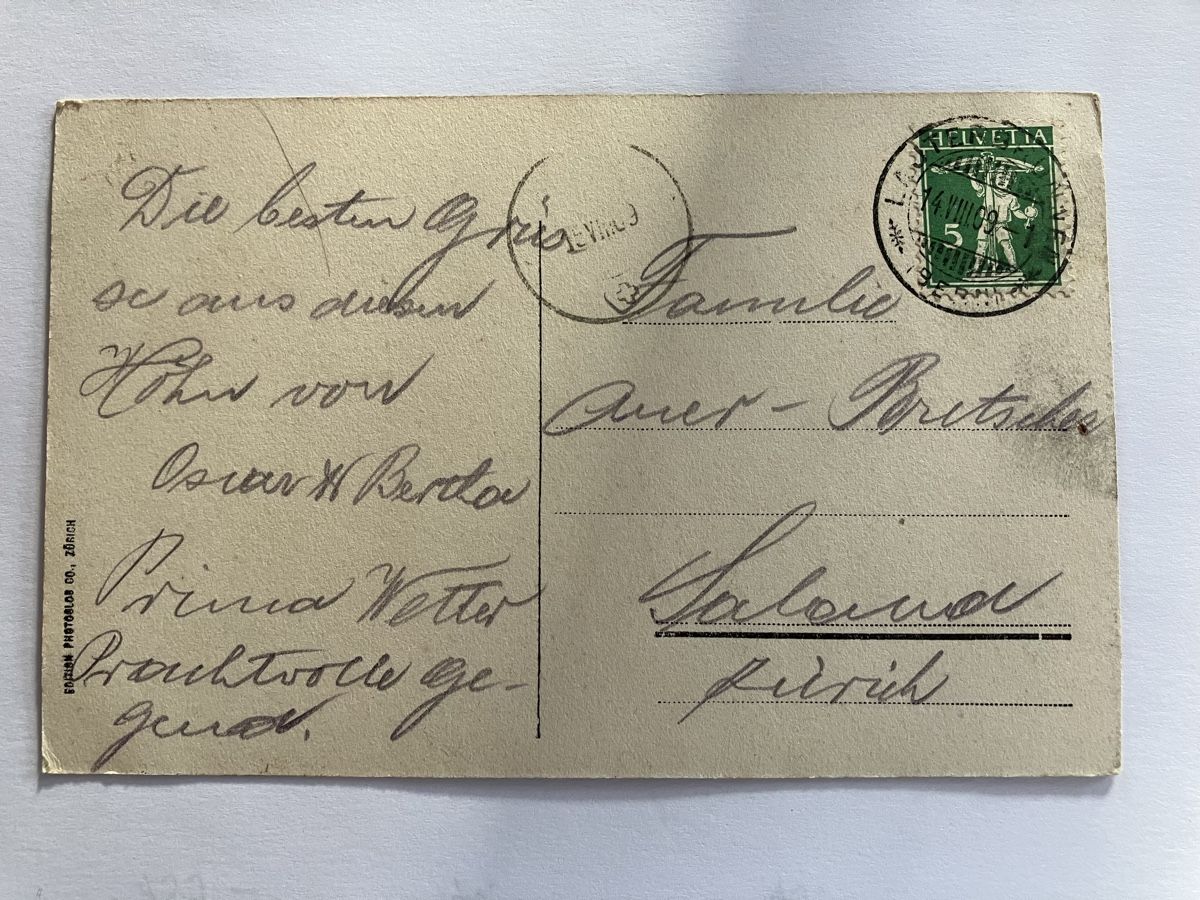 Die besten Grüs
se aus diesen
Höhn von
Oscar & Berta
Prima Wetter
Prachtvolle Ge-
gend.
EDITION PHOTOGLOB CO., ZÜRICH
15.VIII.09
HELVETIA
5
LAUTERBRUNNEN
14.VIII.09.
(BERN)
Familie
Auer - Bretscher
Saland
Zürich